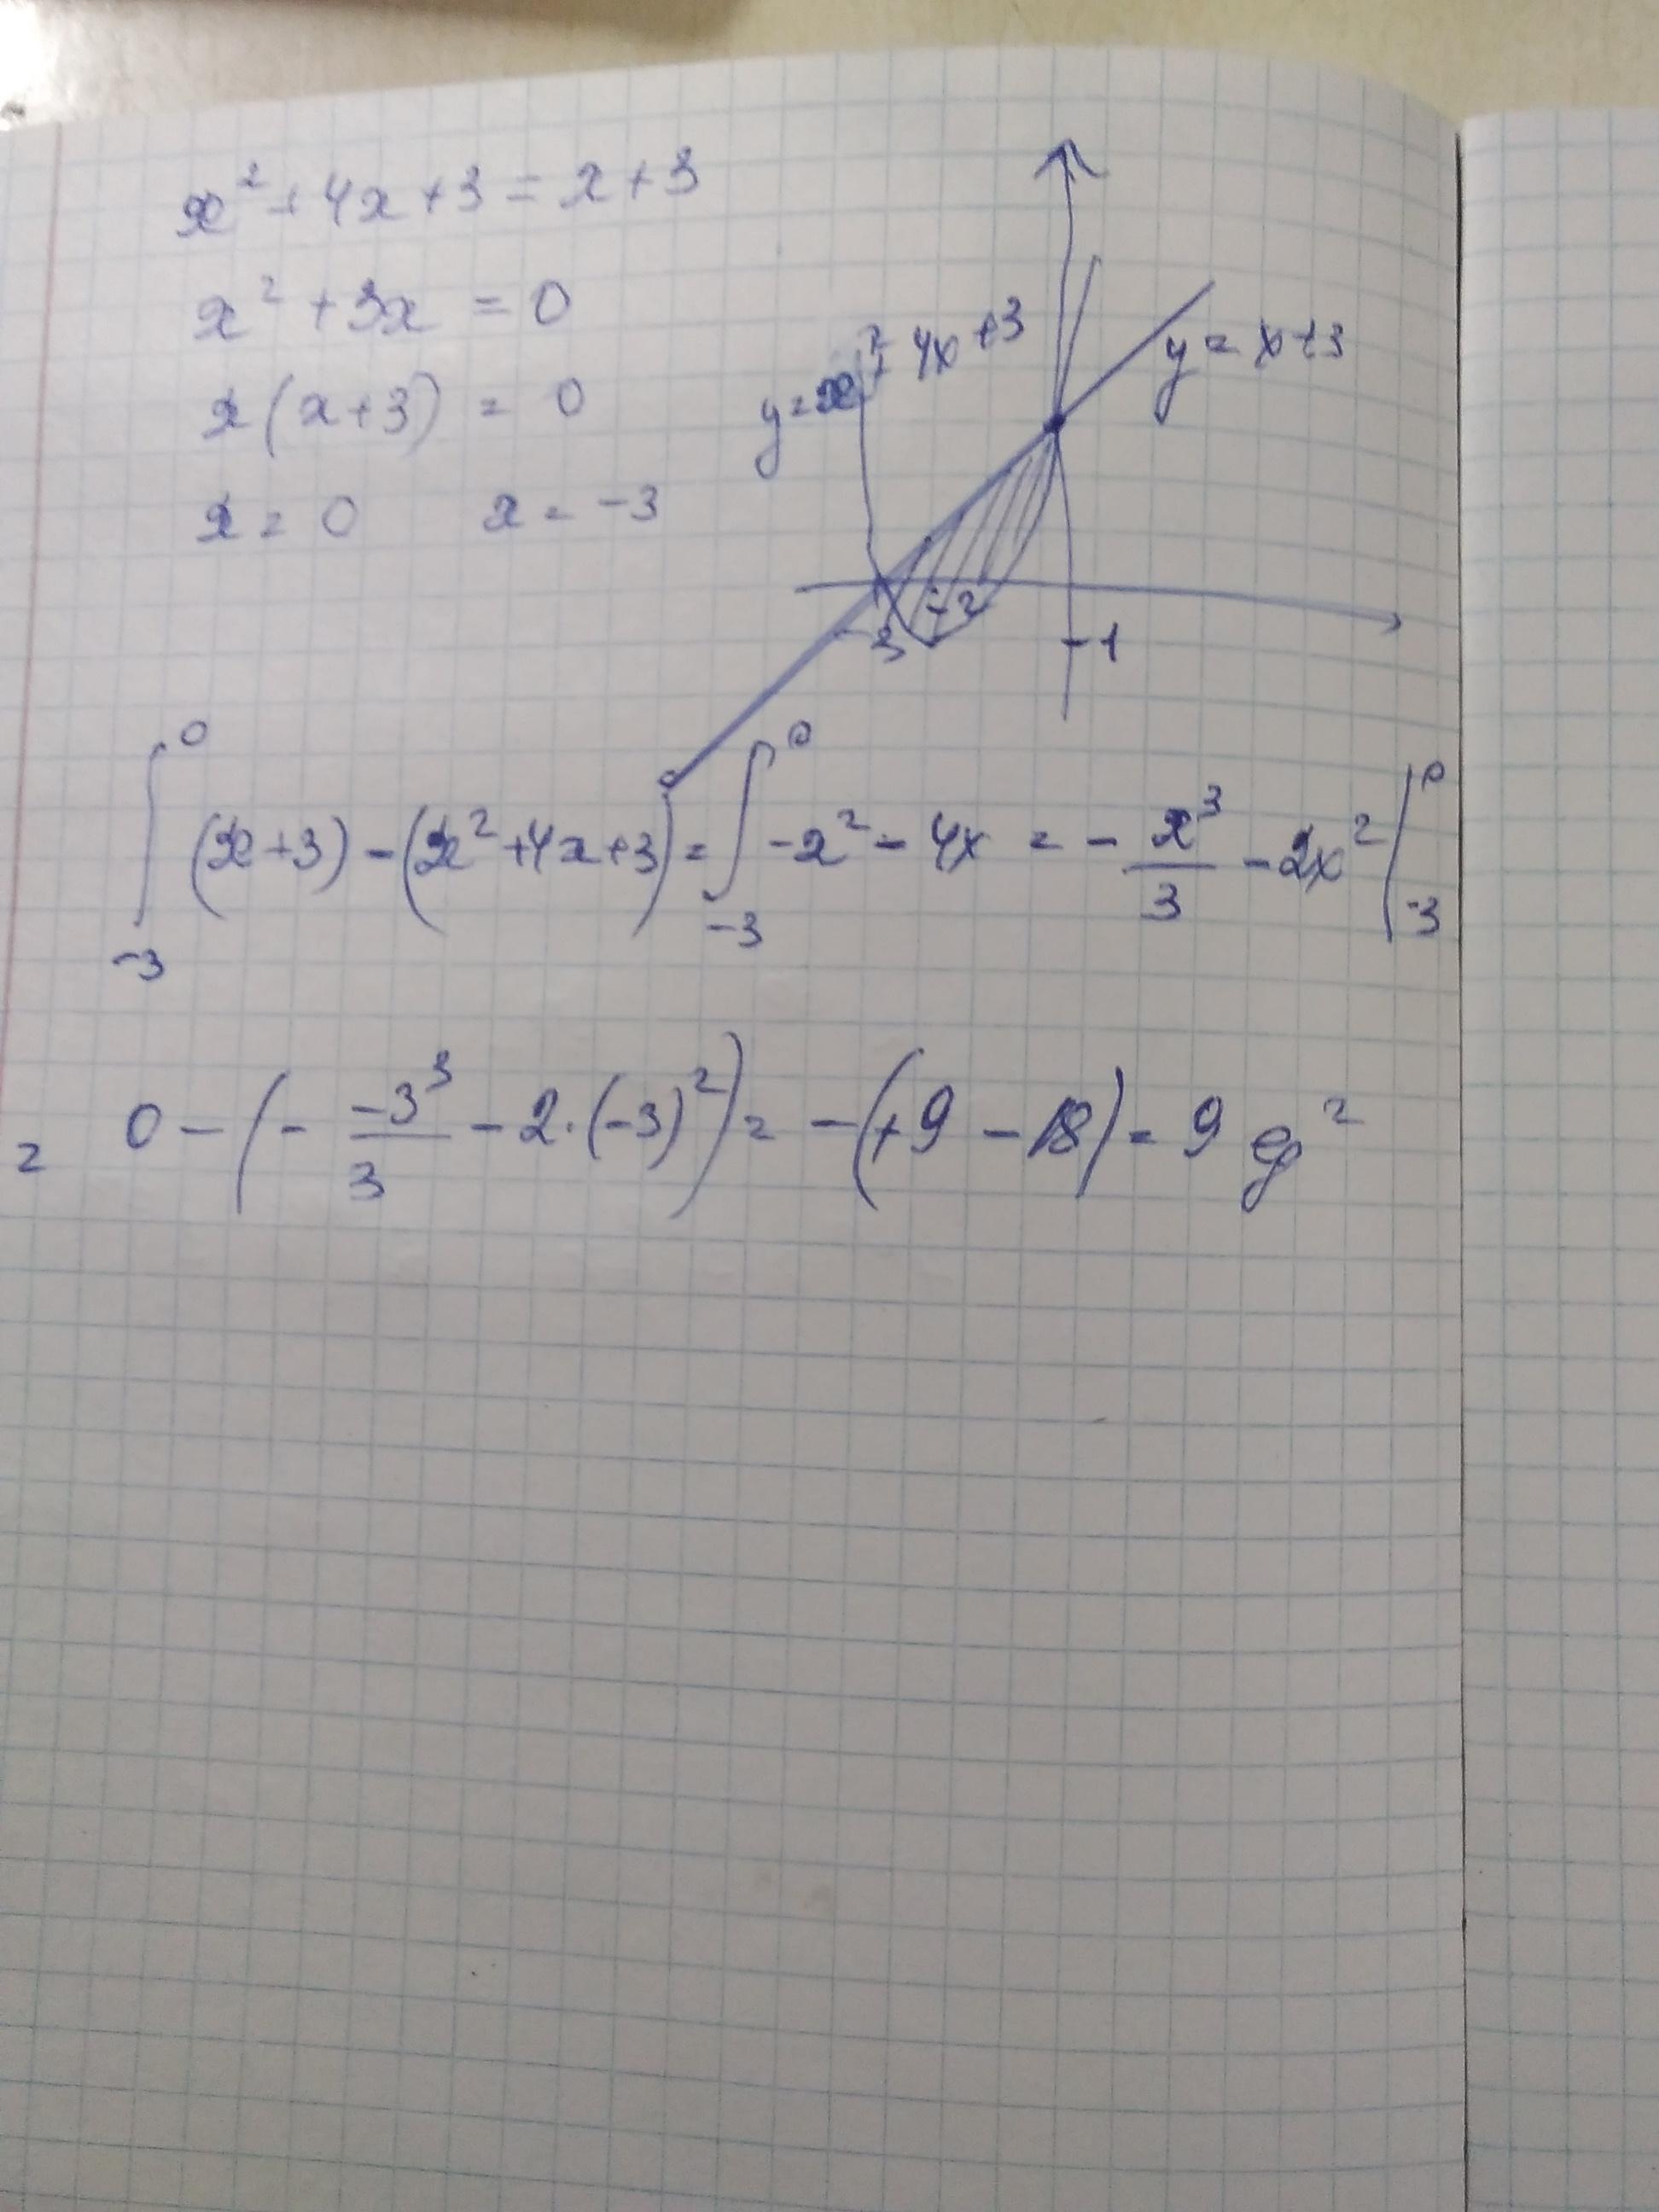 x² + 4x + 3 = x + 3
x² + 3x = 0
x(x+3) = 0
x = 0 x = -3
y = x² + 4x + 3
y = x + 3
-3
-2
-1
∫₋₃⁰ (x+3) - (x² + 4x + 3) = ∫₋₃⁰ -x² - 4x = - x³/3 - 2x² |₋₃⁰
= 0 - (- -3³/3 - 2·(-3)²) = -(+9 - 18) = 9 eg²